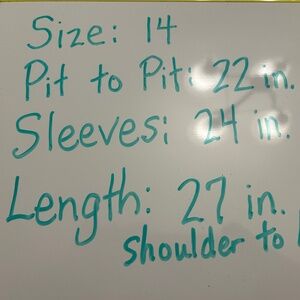 Size: 14
Pit to Pit: 22 in.
Sleeves: 24 in.
Length: 27 in.
shoulder to